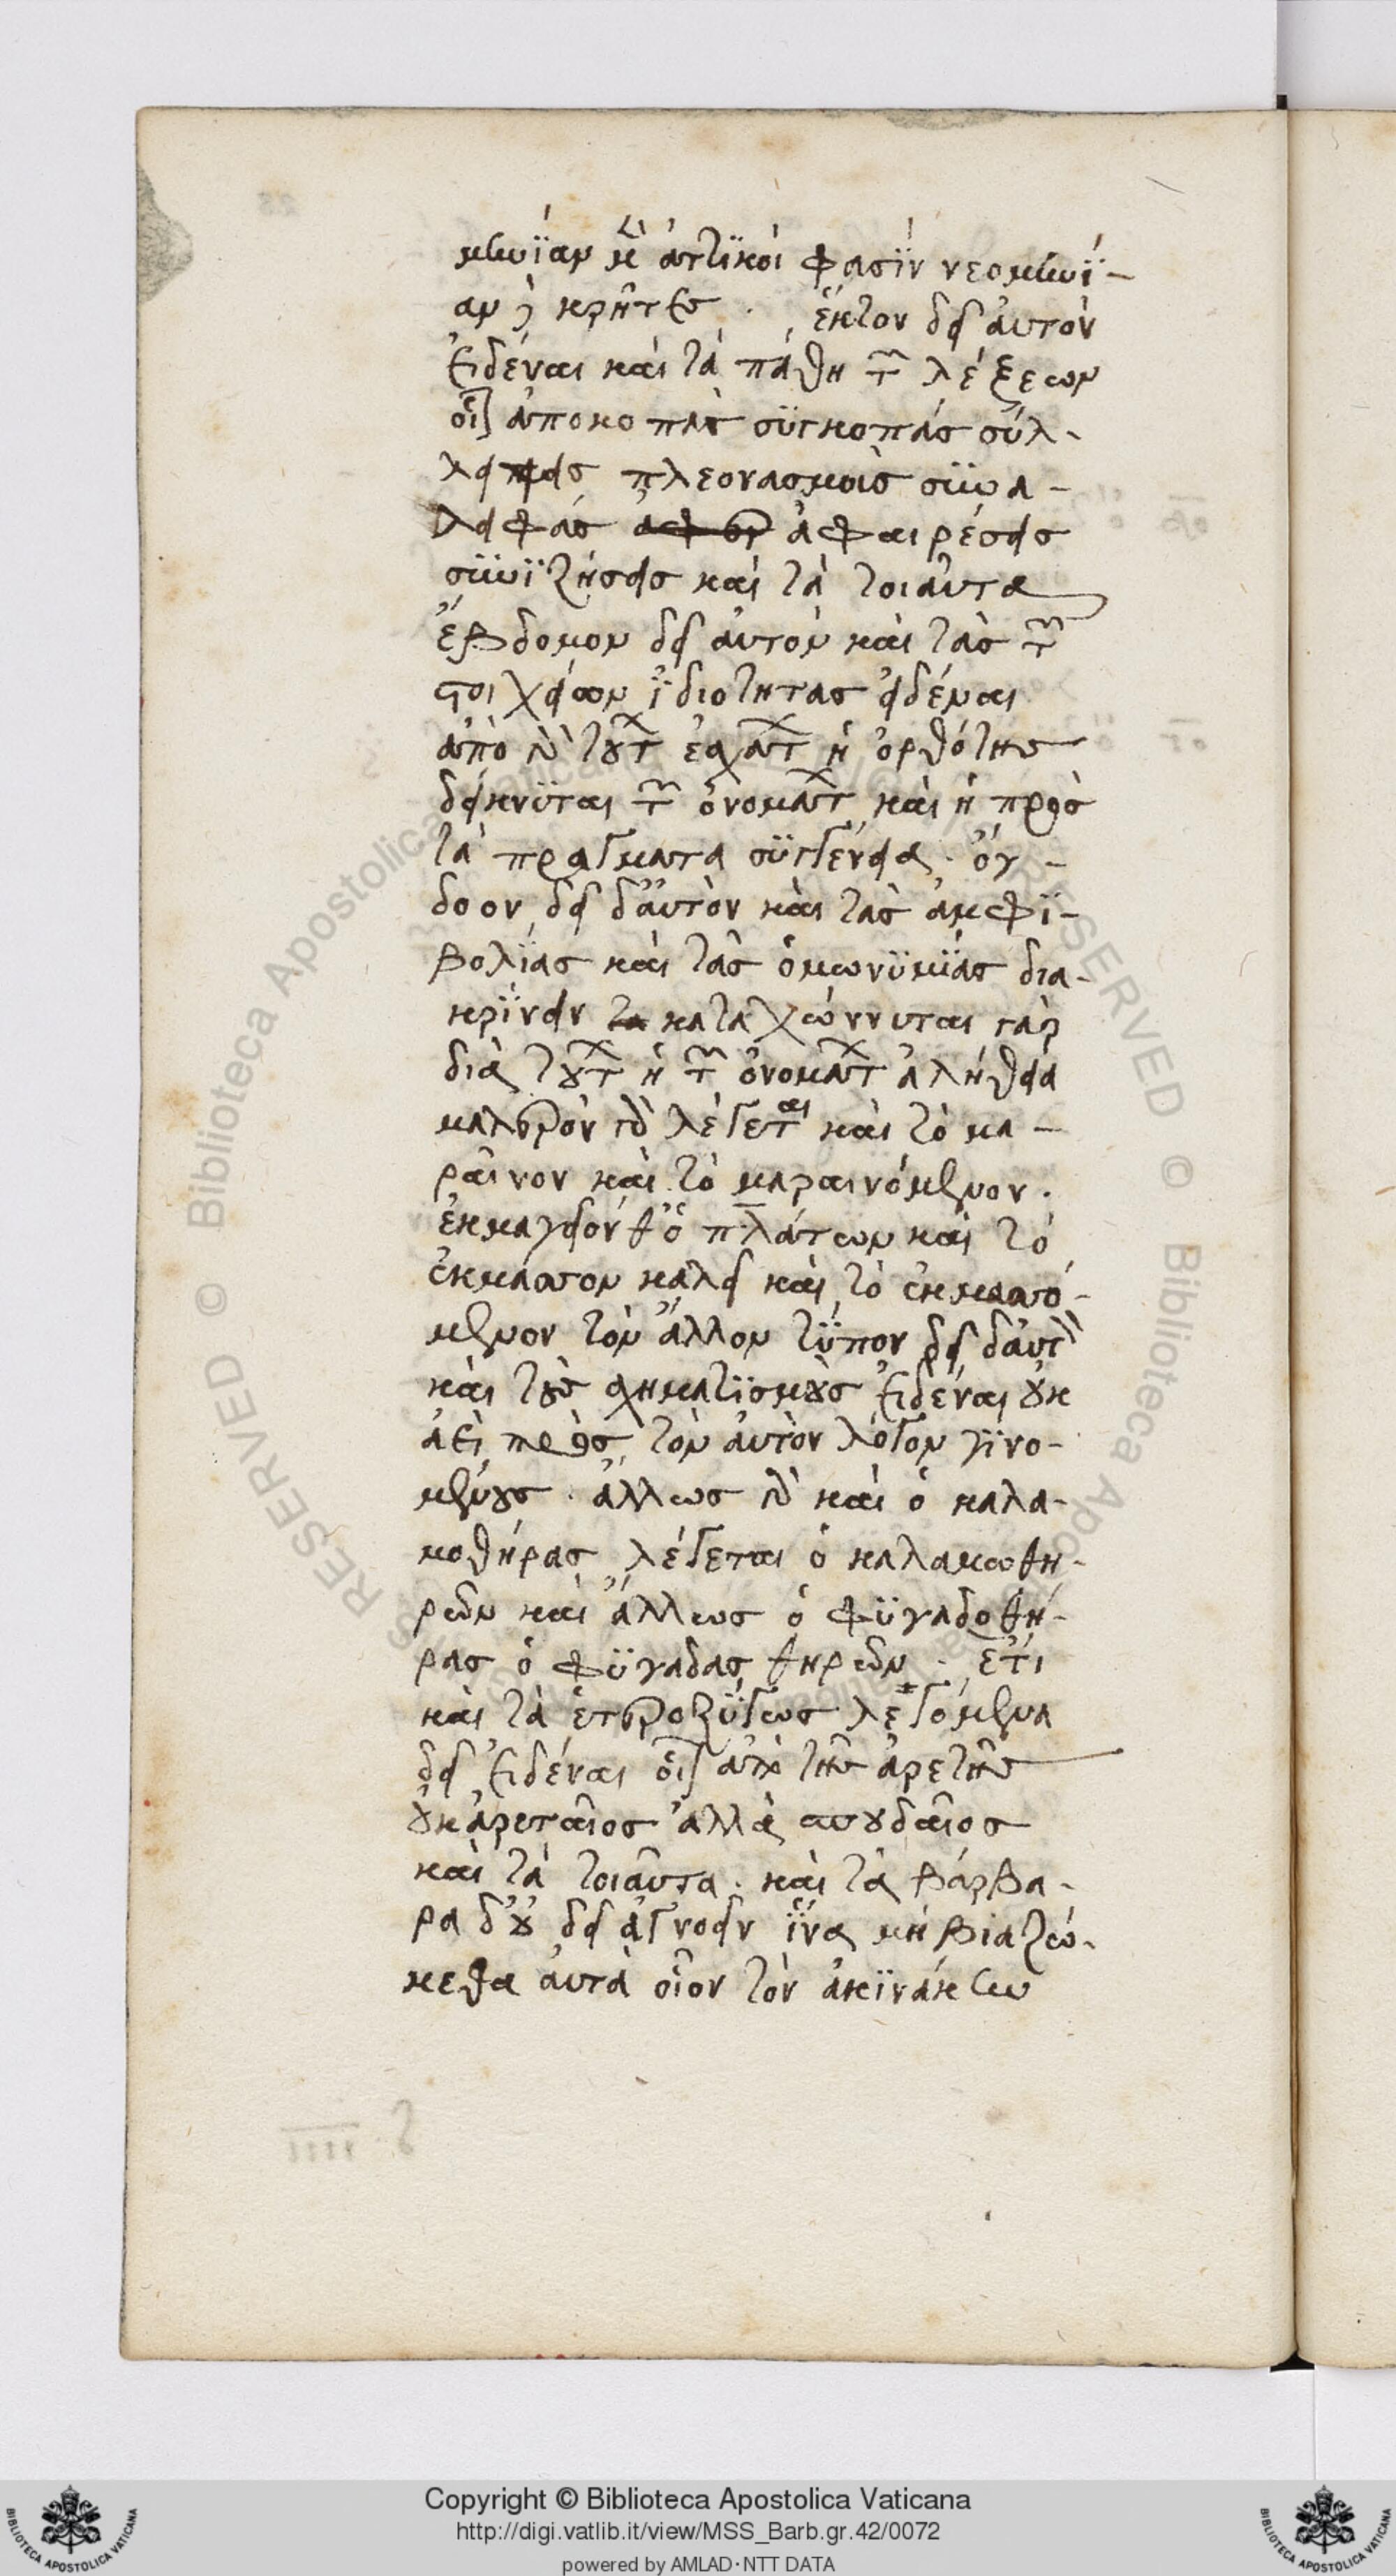 μηνίαν μὲν ἀττικοὶ φασὶν νεομηνί-
αν δὲ κρῆτες . ἕκτον δεῖ αὐτὸν
εἰδέναι καὶ τὰ πάθη τῶν λέξεων
οἷον ἀποκοπὰς συγκοπάς σύλ-
λήψεις πλεονασμοὺς συνα-
λειφάς ἀφαιρέσεις
συνιζήσεις καὶ τὰ τοιαῦτα
ἕβδομον δεῖ αὐτὸν καὶ τὰς τῶν
στοιχείων ἰδιότητας εἰδέναι
ἀπὸ γὰρ τούτων ἐσχάτων ἡ ὀρθότης
δείκνυται τῶν ὀνομάτων καὶ ἡ πρὸς
τὰ πράγματα συγγένεια . ὄγ-
δοον δεῖ δ' αὐτὸν καὶ τὰς ἀμφι-
βολίας καὶ τὰς ὁμωνυμίας δια-
κρίνειν καταχώννυται γὰρ
διὰ τούτων ἡ τῶν ὀνομάτων ἀλήθεια
μαλερὸν γὰρ λέγεται καὶ τὸ μα-
ραῖνον καὶ τὸ μαραινόμενον .
ἐκμαγεῖόν θ' ὁ πλάτων καὶ τὸ
ἐκμάττον καλεῖ καὶ τὸ ἐκματτό-
μενον τὸν ἄλλον τύπον δεῖ δ' αὐτὸν
καὶ τοὺς σχηματισμοὺς εἰδέναι οὐκ
ἀεὶ πρὸς τὸν αὐτὸν λόγον γινο-
μένους . ἄλλως γὰρ καὶ ὁ καλα-
μοθήρας λέγεται ὁ καλάμω θη-
ρῶν καὶ ἄλλως ὁ φυγαδοθή-
ρας ὁ φυγάδας θηρῶν . ἔτι
καὶ τὰ ἑτεροζύγως λεγόμενα
δεῖ εἰδέναι οἷον ἀπὸ τῆς ἀρετῆς
οὐκ ἀρεταῖος ἀλλὰ σπουδαῖος
καὶ τὰ τοιαῦτα . καὶ τὰ βάρβα-
ρα δ' οὐ δεῖ ἀγνοεῖν ἵνα μὴ βιαζώ-
μεθα αὐτὰ οἷον τὸν ἀκινάκην
Copyright © Biblioteca Apostolica Vaticana
http://digi.vatlib.it/view/MSS_Barb.gr.42/0072
powered by AMLAD·NTT DATA